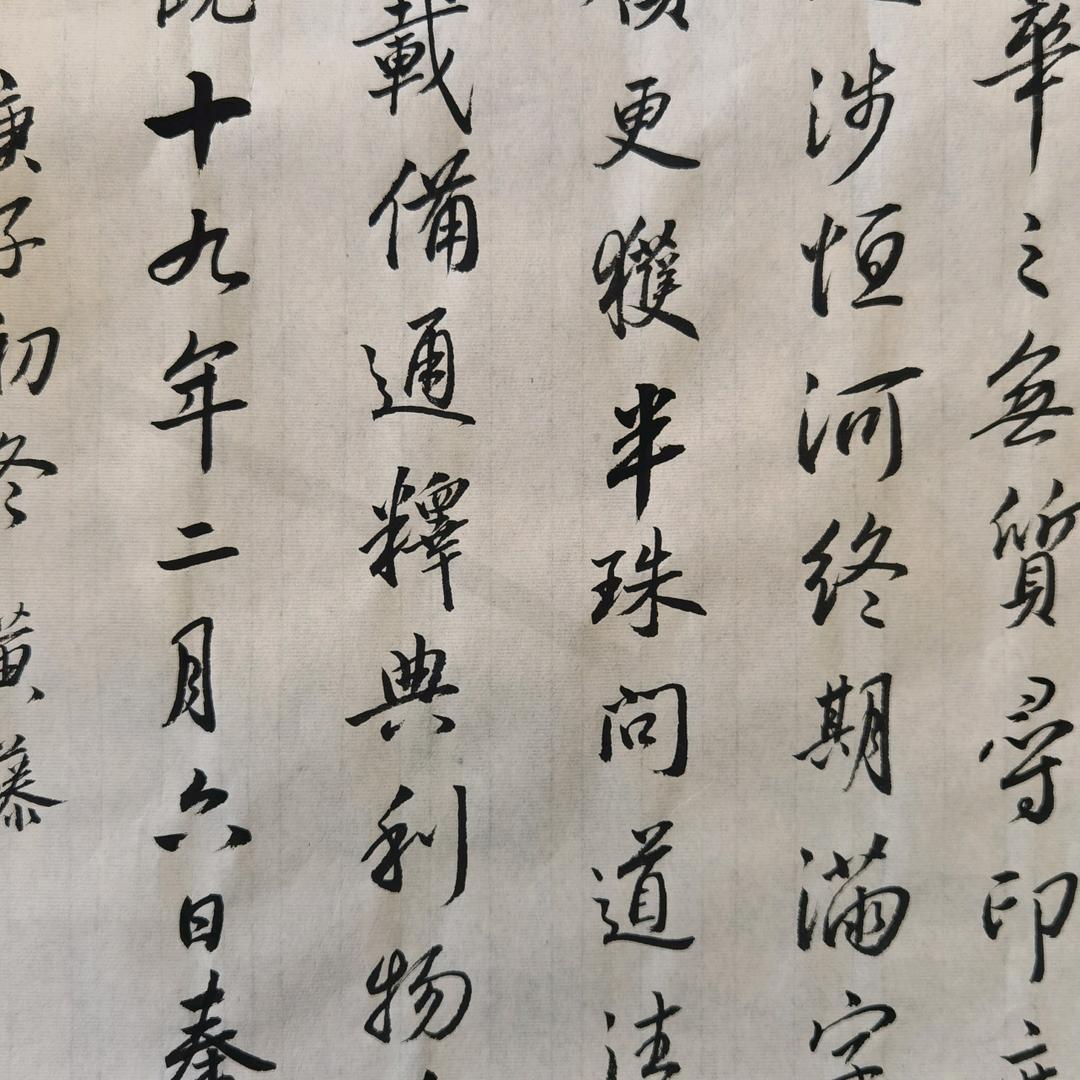 華之無質尋印度
涉恒河終期滿字
更獲半珠問道法
載備通釋典利物
十九年二月六日奏
庚子初冬黃藤